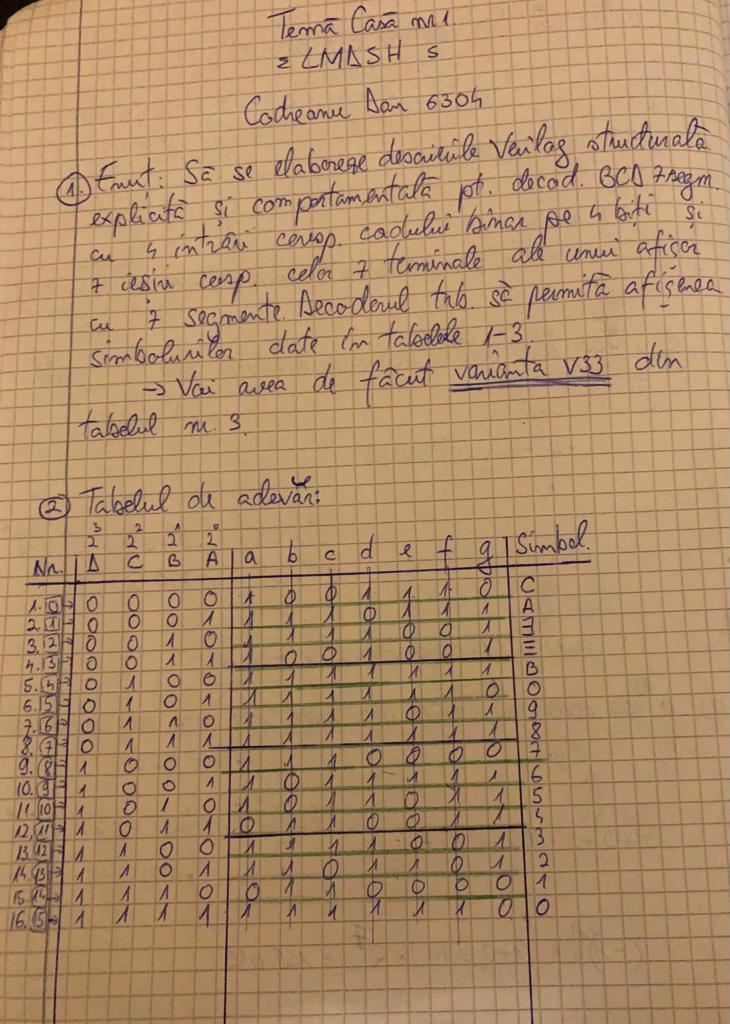 Temă Casă nr 1
Σ LMDSH s
Codreanu Dan 6304
① Enunț: Să se elaboreze descrierile Verilog structurală
explicită și comportamentală pt. decod. BCD 7 segm.
cu 4 intrări coresp. codului binar pe 4 biți și
7 ieșiri coresp. celor 7 terminale ale unui afișor
cu 7 segmente. Decoderul treb. să permită afișarea
simbolurilor date în tabelele 1-3.
→ Voi avea de făcut varianta V33 din
tabelul nr. 3.
② Tabelul de adevăr:
2³ 2² 2¹ 2⁰
Nr. D C B A a b c d e f g Simbol.
1. 0 → 0 0 0 0 1 0 0 1 1 1 0 C
2. 1 → 0 0 0 1 1 1 1 0 1 1 1 A
3. 2 → 0 0 1 0 1 1 1 1 0 0 1 Ǝ
4. 3 → 0 0 1 1 1 0 0 1 0 0 1 Ξ
5. 4 → 0 1 0 0 1 1 1 1 1 1 1 B
6. 5 → 0 1 0 1 1 1 1 1 1 1 0 0
7. 6 → 0 1 1 0 1 1 1 1 0 1 1 9
8. 7 → 0 1 1 1 1 1 1 1 1 1 1 8
9. 8 → 1 0 0 0 1 1 1 0 0 0 0 7
10. 9 → 1 0 0 1 1 0 1 1 1 1 1 6
11. 10 → 1 0 1 0 1 0 1 1 0 1 1 5
12. 11 → 1 0 1 1 0 1 1 0 0 1 1 4
13. 12 → 1 1 0 0 1 1 1 1 0 0 1 3
14. 13 → 1 1 0 1 1 1 0 1 1 0 1 2
15. 14 → 1 1 1 0 0 1 1 0 0 0 0 1
16. 15 → 1 1 1 1 1 1 1 1 1 1 0 0